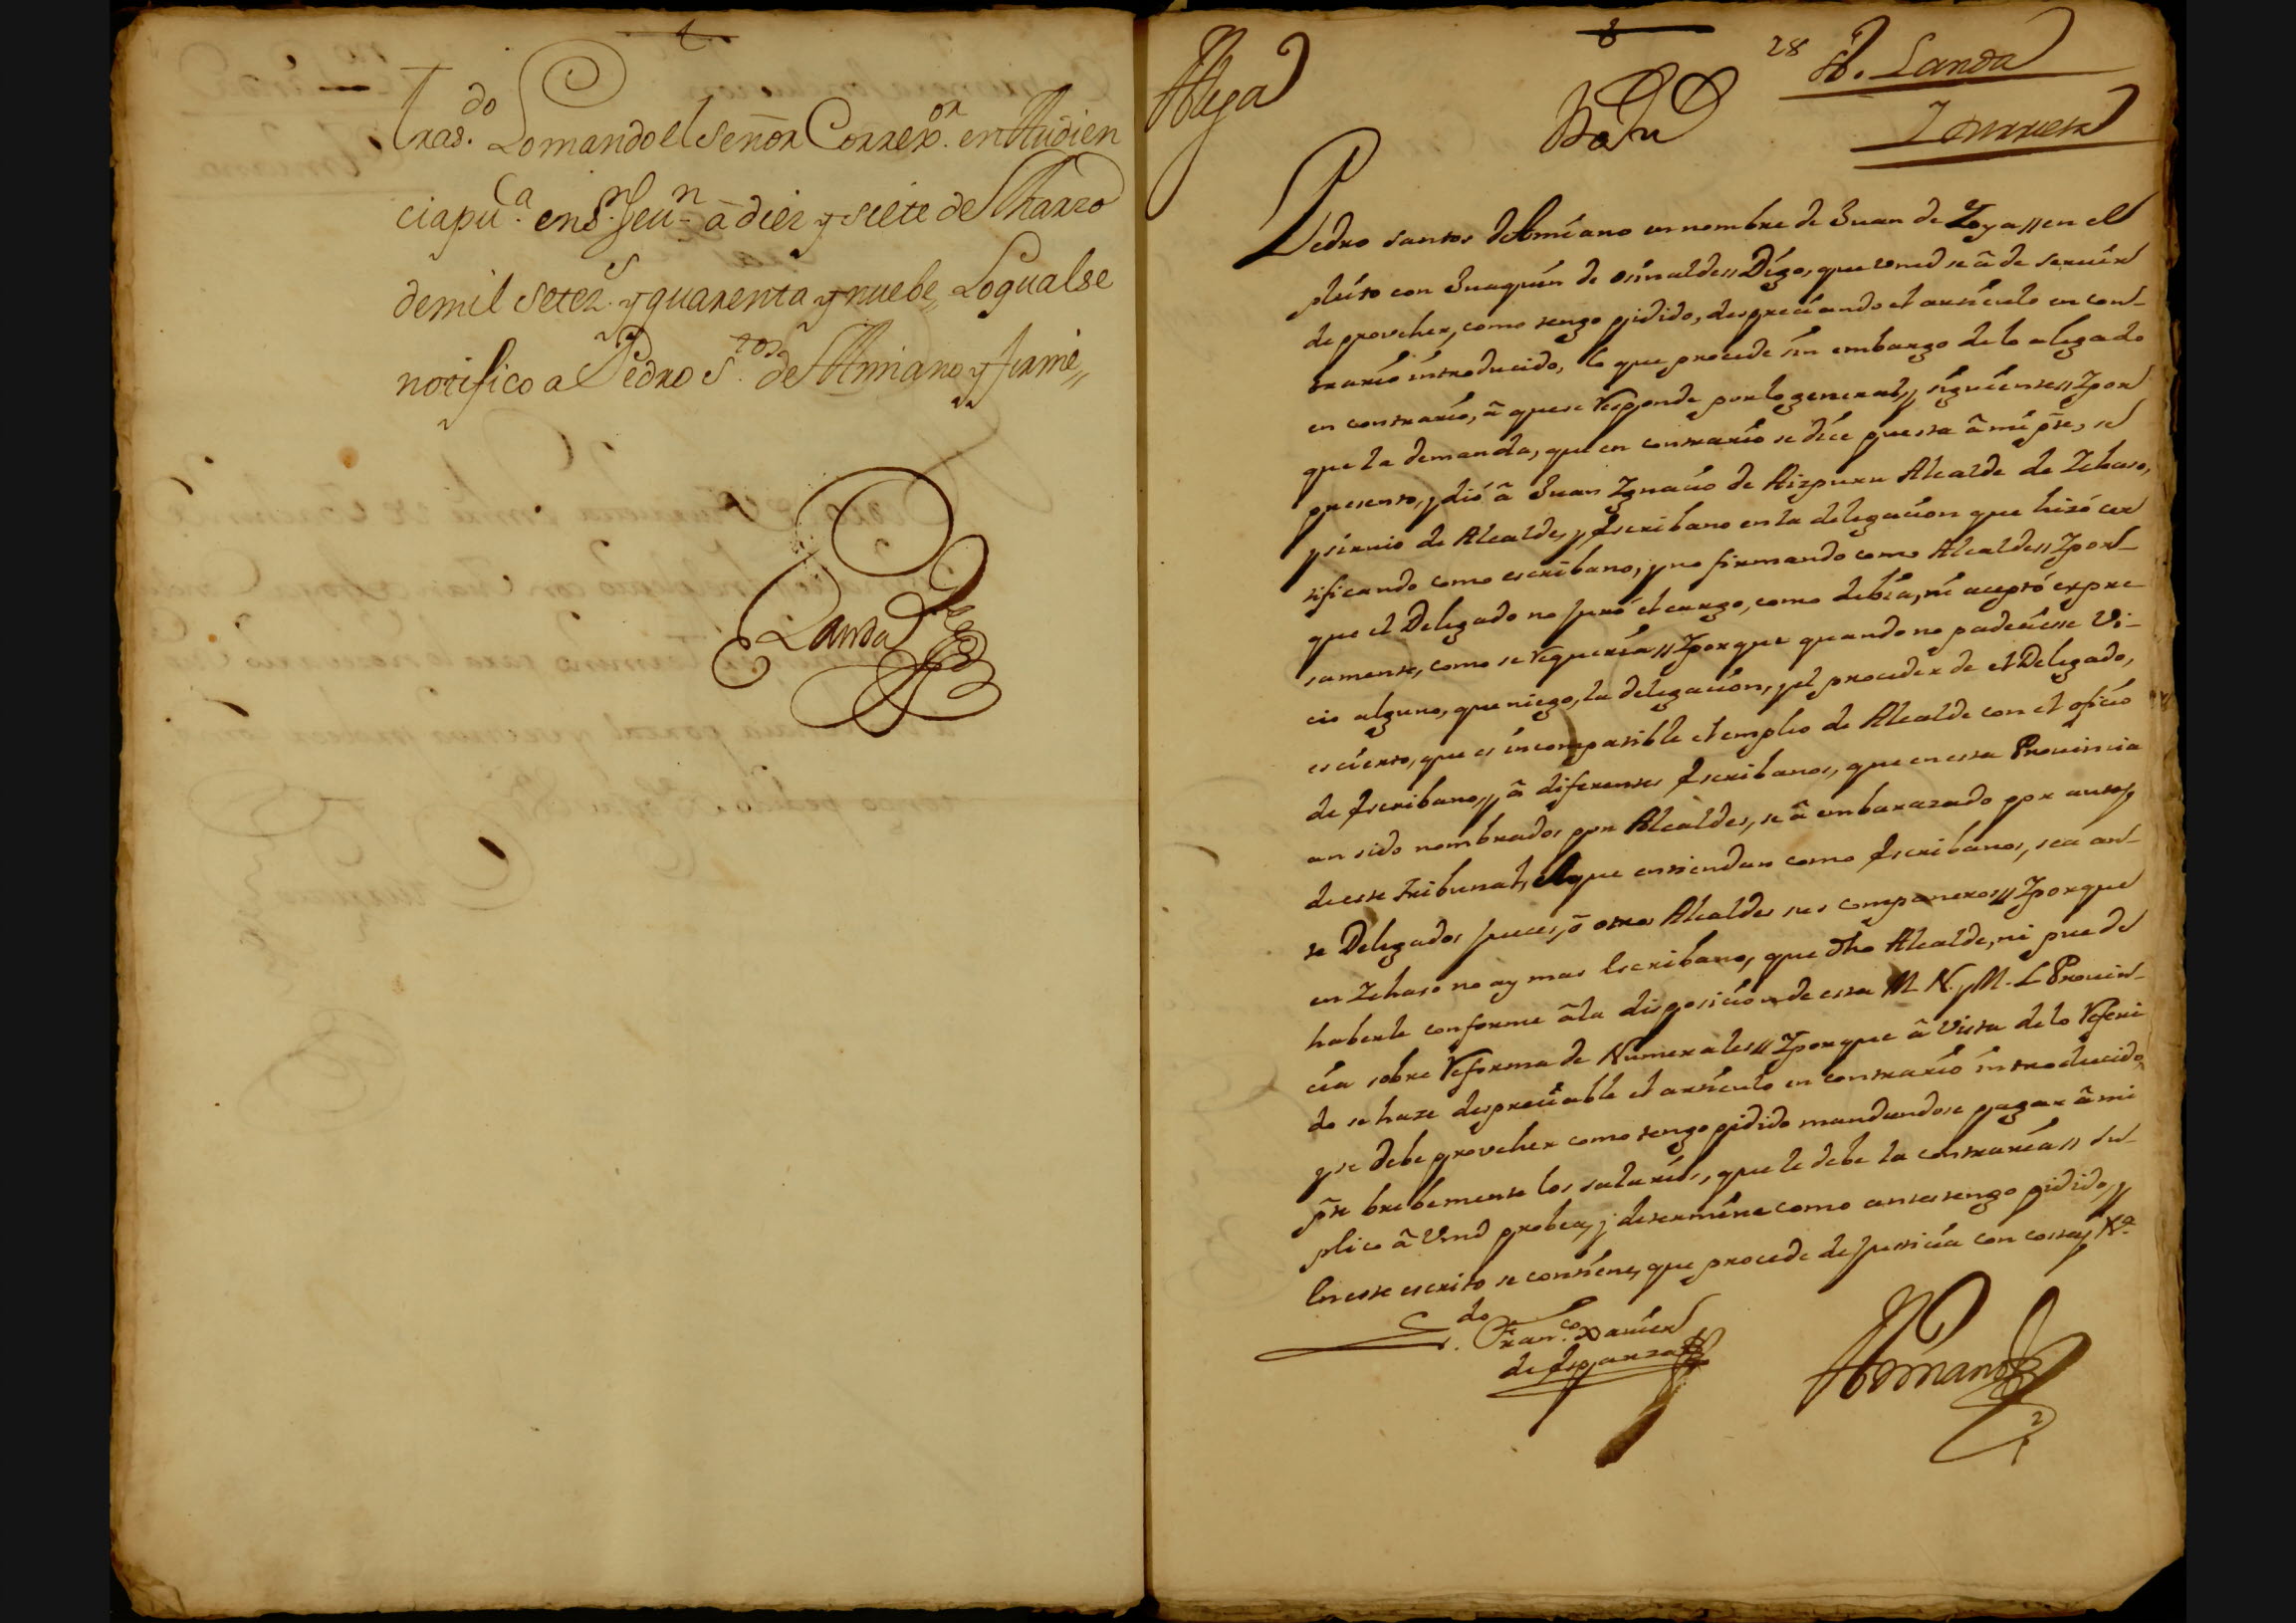 Tras.do Lo mando el Señor Correx.or en Audien
cia pu.ca en S.n Seu.n â diez y siete de Marzo
de mil setez.s y quarenta y nuebe,, Lo qual se
notifico a Pedro S.tos de Amiano y firmè,,
Landa
28
S.o Landa
Alega
Pedro Santos de Amiano en nombre de Juan de Zoya,, en el
pleito con Juaquin de osinalde,, Digo, que vmd se â de seruir
de proveher, como tengo pidido, despreciando el articulo en con-
trario introducido, lo que procede sin embargo de lo alegado
en contrario, â que se responde por lo general, y siguiente,, Y por
que la demanda, que en contrario se dice puesta â mi p̃te, se
presentò, y diò â Juan Ygnacio de Aizpuru Alcalde de Ychaso,
y siruio de Alcalde, y Escribano en la delegacion que hizò cer
tificando como escribano, y no firmando como Alcalde,, Y por-
que el Delegado no jurò el cargo, como debia, ni aceptó expre
samente, como se requeria,, Y porque quando no padeciesse vi-
cio alguno, que niego, la delegacion, y el proceder de el Delegado,
es cierto, que es incompatible el empleo de Alcalde con el oficio
de Escribano, y â diferentes Escribanos, que en esta Prouincia
an sido nombrados por Alcaldes, se â embarazado por autos
de este tribunal, el que entiendan como Escribanos, sea an-
te Delegados Jueces, ô otros Alcaldes sus compañeros,, Y porque
en Ychaso no ay mas Escribano, que dho Alcalde, ni puede
haberle conforme â la disposicion de esta M. N. y M. L Prouin-
cia sobre reforma de Numerales,, Y porque â vista de lo referi
do se haze despreciable el articulo en contrario introducido,
y se debe proveher como tengo pidido mandandose pagar â mi
p̃te brebemente los salarios, que le debe la contraria,, Su-
plico â Vmd probea, y determine como antes tengo pidido, y
en este escrito se contiene, que procede de justicia con costas, &.a
L.do Fran.co Xauier
de Esparza
Amiano